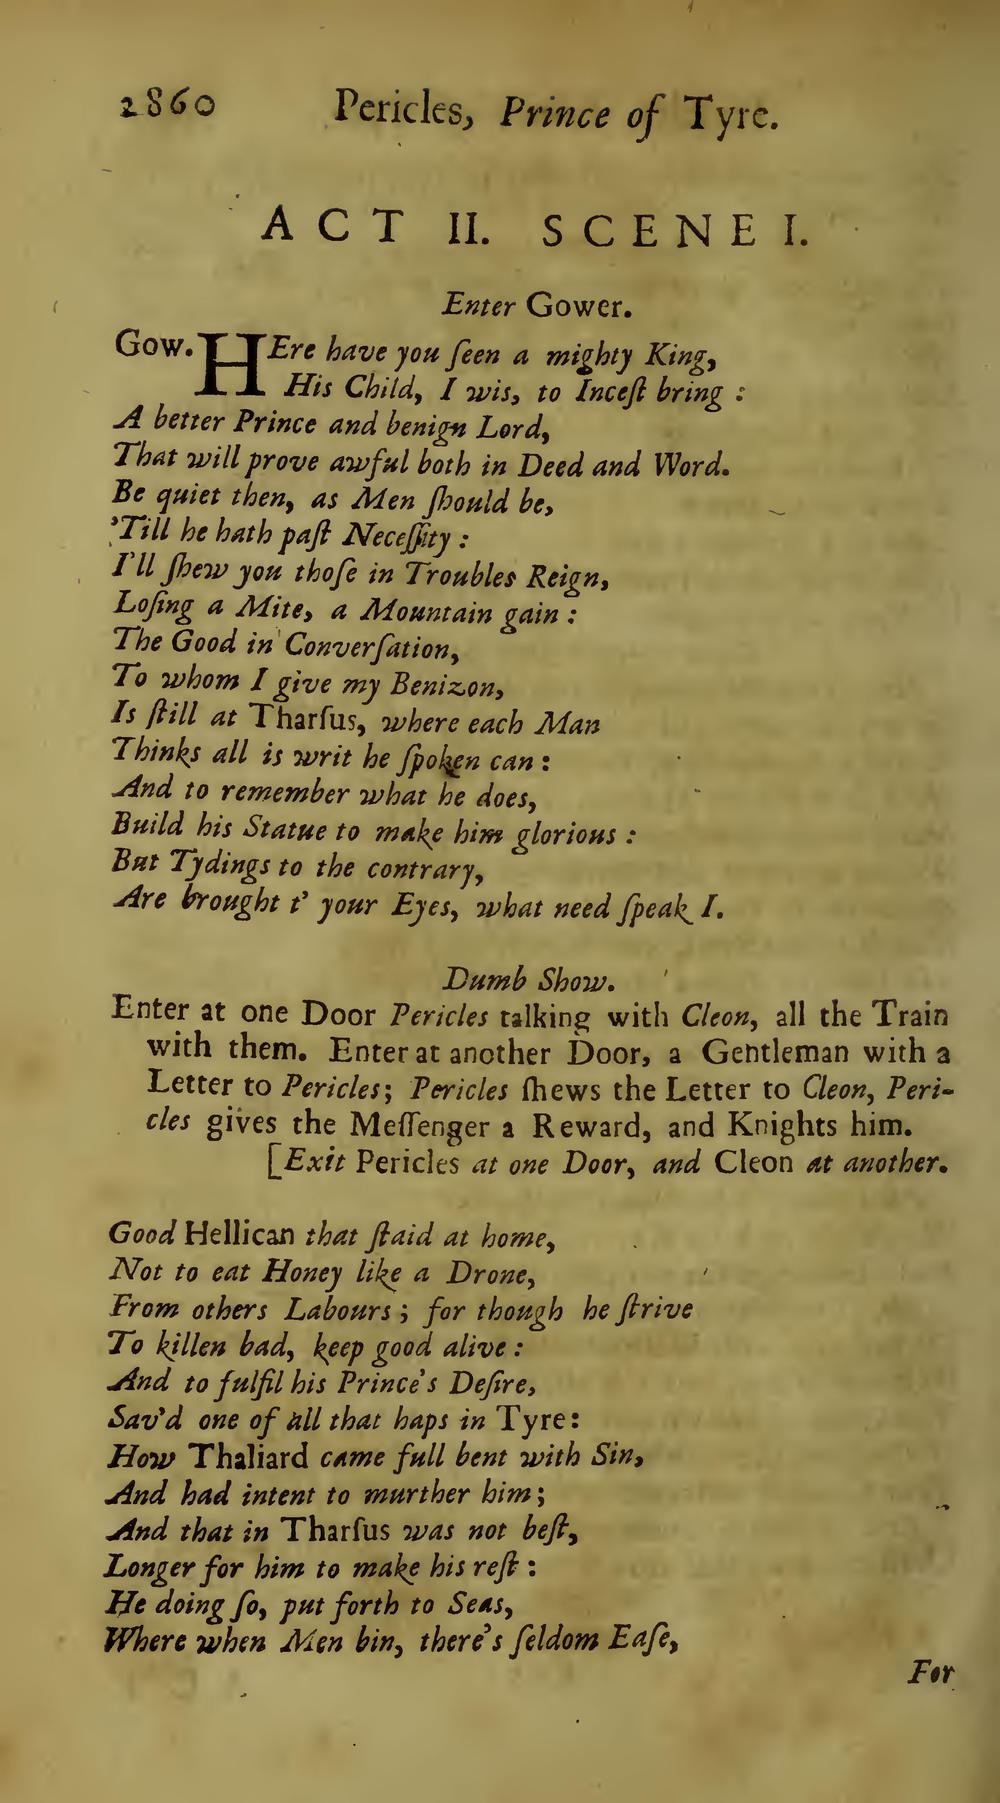 2860 Pericles, Prince of Tyre.
ACT II. SCENE I.
Enter Gower.
Gow. HEre have you ſeen a mighty King,
His Child, I wis, to Inceſt bring :
A better Prince and benign Lord,
That will prove awful both in Deed and Word.
Be quiet then, as Men ſhould be,
'Till he hath paſt Neceſſity :
I'll ſhew you thoſe in Troubles Reign,
Loſing a Mite, a Mountain gain :
The Good in Converſation,
To whom I give my Benizon,
Is ſtill at Tharſus, where each Man
Thinks all is writ he ſpoken can :
And to remember what he does,
Build his Statue to make him glorious :
But Tydings to the contrary,
Are brought t' your Eyes, what need ſpeak I.
Dumb Show.
Enter at one Door Pericles talking with Cleon, all the Train
with them. Enter at another Door, a Gentleman with a
Letter to Pericles; Pericles ſhews the Letter to Cleon, Peri-
cles gives the Meſſenger a Reward, and Knights him.
[Exit Pericles at one Door, and Cleon at another.
Good Hellican that ſtaid at home,
Not to eat Honey like a Drone,
From others Labours ; for though he ſtrive
To killen bad, keep good alive :
And to fulfil his Prince's Deſire,
Sav'd one of all that haps in Tyre:
How Thaliard came full bent with Sin,
And had intent to murther him ;
And that in Tharſus was not beſt,
Longer for him to make his reſt :
He doing ſo, put forth to Seas,
Where when Men bin, there's ſeldom Eaſe,
For